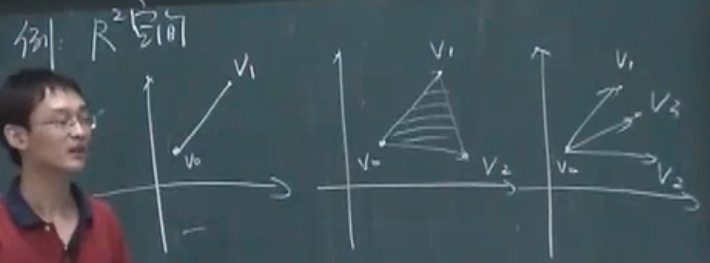 例: R²空间
V₁
V₀
V₁
V₀
V₂
V₁
V₃
V₀
V₂